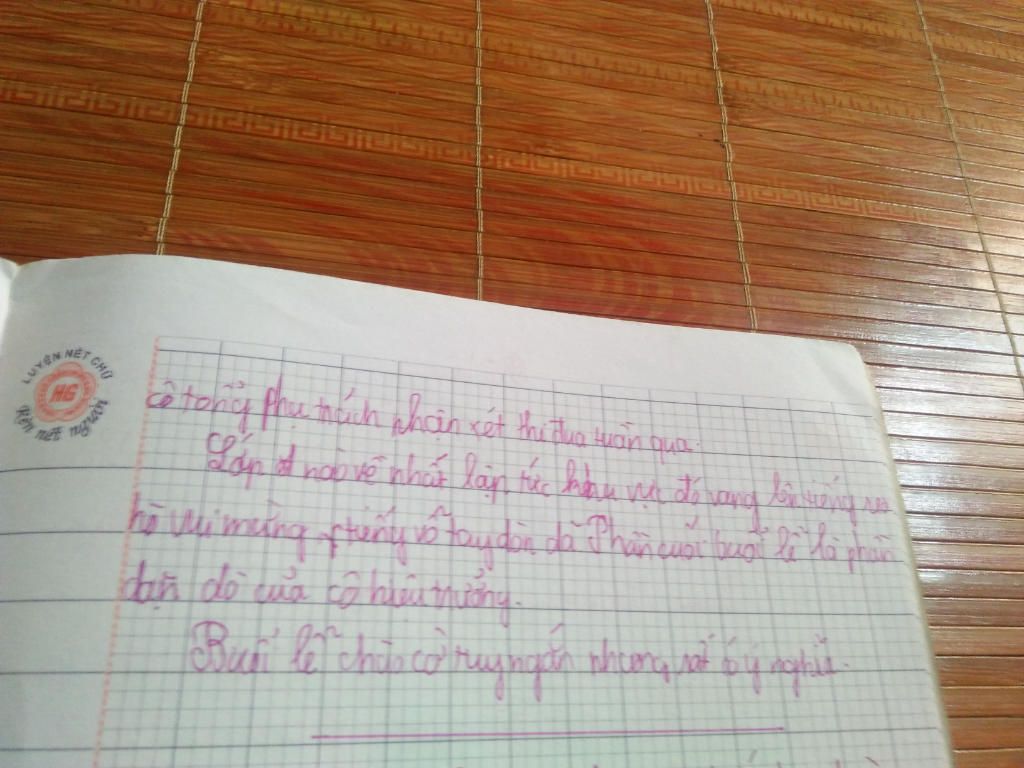 LUYỆN NÉT CHỮ
HG
Rèn nết người
cô tổng phụ trách nhận xét thi đua tuần qua.
Lớp nào về nhất lập tức khu vực đó vang lên tiếng reo
hò vui mừng, tiếng vỗ tay dồn dã Phần cuối buổi lễ là phần
dặn dò của cô hiệu trưởng.
Buổi lễ chào cờ tuy ngắn nhưng rất có ý nghĩa.